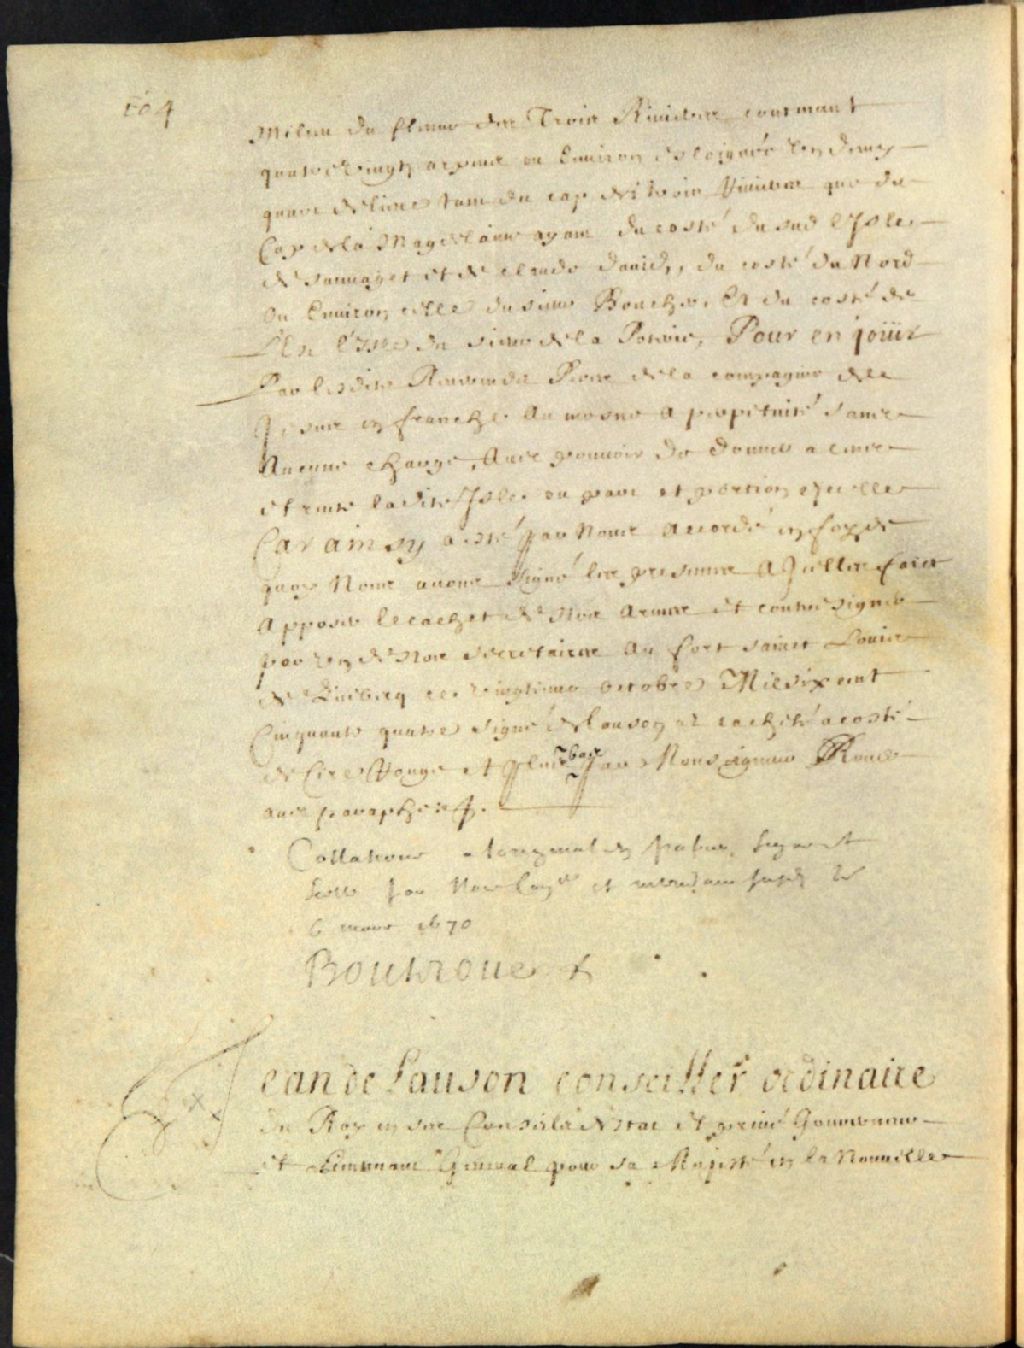 104
Milieu du fleuve des Trois Rivieres contenant
quatre vingtz arpens ou Environ esloignée
quart de lieue tant du cap des trois Rivieres que du
Cap de la Magdelaine ayant du costé du sud l'Isle
de sauvaget et de claude david, du costé du Nord
ou Environ celle du sieur Boucher Et du costé de
l'Est l'Isle du sieur de la Poterie, Pour en joüir
Par lesdits Reverends Peres de la compagnie de
Jesus en franche Aumosne A perpetuité sans
Aucune charge, Avec pouvoir de donner a cens
et rente ladite Isle ou part et portion d'icelle
Car ainsy a esté par Nous accordé en foy de
quoy Nous avons signé les presentes A Jcelles faict
Apposer le cachet de Nos Armes et contresigner
par l'un de Nos secretaires Au fort sainct Louis
de Quebecq ce vingtieme octobre Mil six cent
Cinquante quatre signé De Lauson et cacheté a costé
de Cire Rouge et plus bas par Monseigneur Rouer
avec paraphe ./.
Collationé a loriginal en papier signé et
scellé par Nous et
6 mars 1670
Boutroue
Jean de Lauson conseiller ordinaire
du Roy en son Conseil d'Estat et privé Gouverneur
et Lieutenant General pour sa Majesté en la Nouvelle